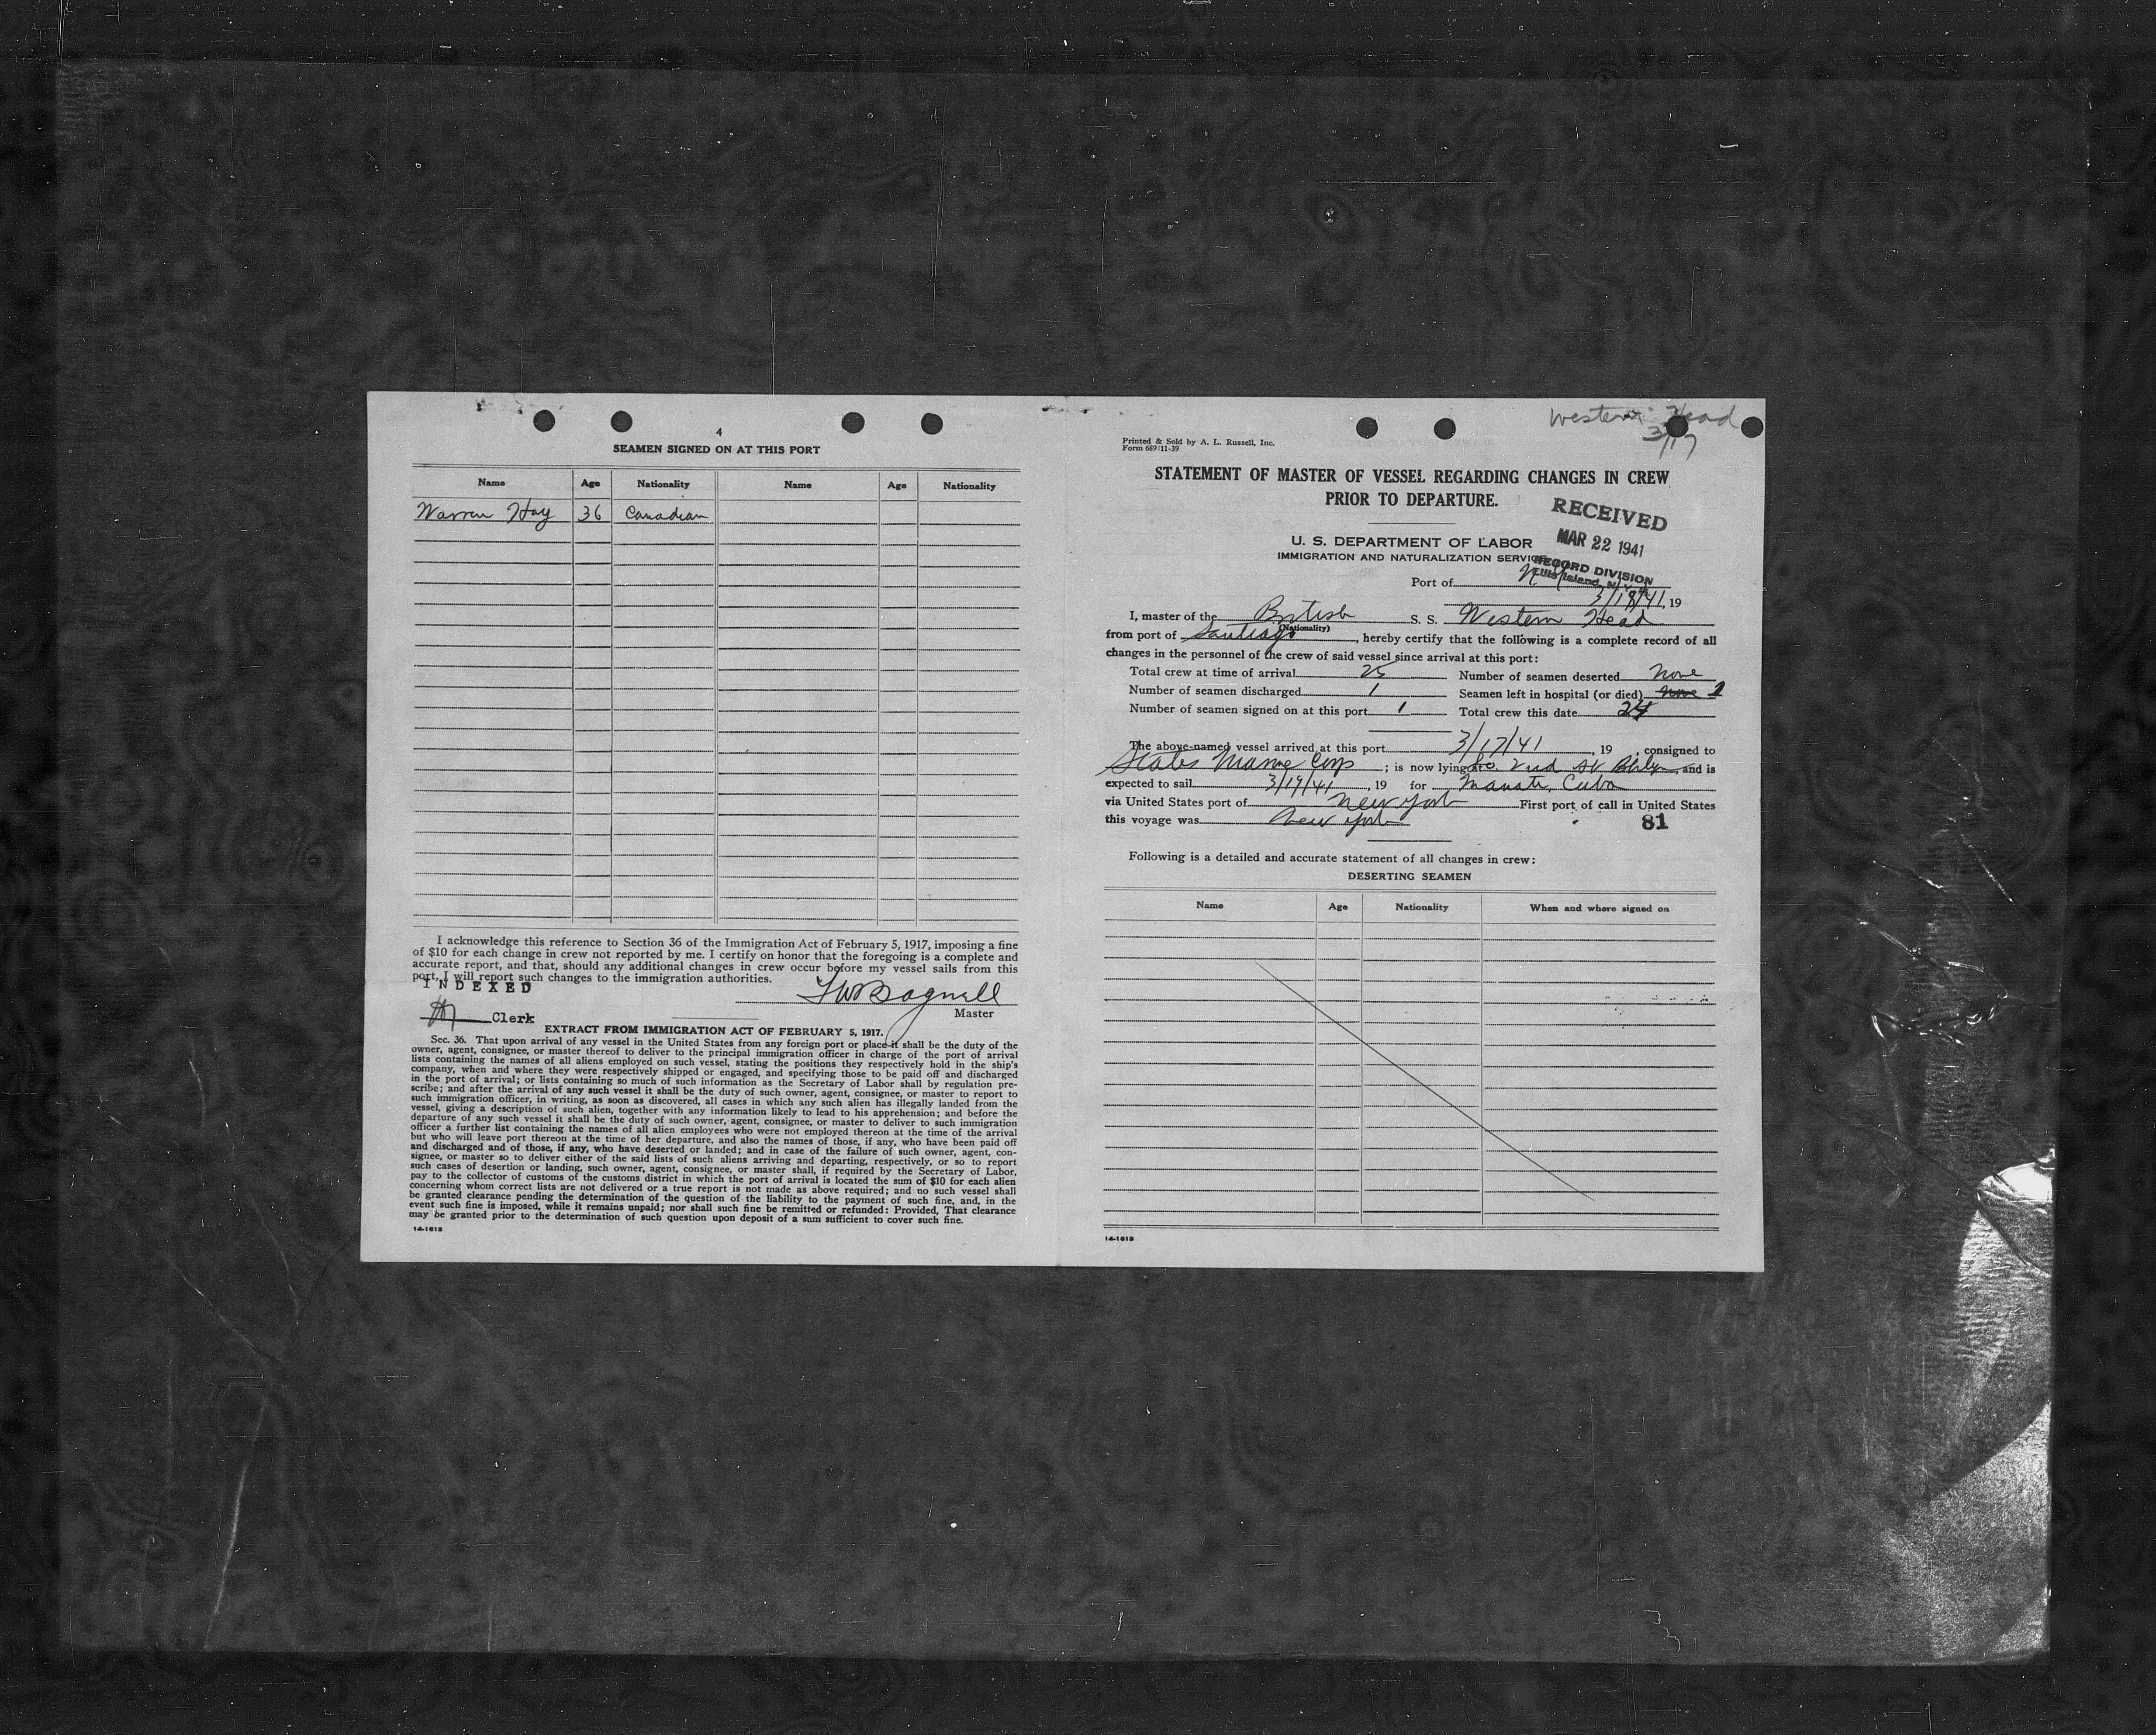 4
SEAMEN SIGNED ON AT THIS PORT
Name Age Nationality Name Age Nationality
Warren Hay 36 Canadian
I acknowledge this reference to Section 36 of the Immigration Act of February 5, 1917, imposing a fine
of $10 for each change in crew not reported by me. I certify on honor that the foregoing is a complete and
accurate report, and that, should any additional changes in crew occur before my vessel sails from this
port, I will report such changes to the immigration authorities.
INDEXED
Bagnall
Master
Clerk
EXTRACT FROM IMMIGRATION ACT OF FEBRUARY 5, 1917.
Sec. 36. That upon arrival of any vessel in the United States from any foreign port or place it shall be the duty of the
owner, agent, consignee, or master thereof to deliver to the principal immigration officer in charge of the port of arrival
lists containing the names of all aliens employed on such vessel, stating the positions they respectively hold in the ship's
company, when and where they were respectively shipped or engaged, and specifying those to be paid off and discharged
in the port of arrival; or lists containing so much of such information as the Secretary of Labor shall by regulation pre-
scribe; and after the arrival of any such vessel it shall be the duty of such owner, agent, consignee, or master to report to
such immigration officer, in writing, as soon as discovered, all cases in which any such alien has illegally landed from the
vessel, giving a description of such alien, together with any information likely to lead to his apprehension; and before the
departure of any such vessel it shall be the duty of such owner, agent, consignee, or master to deliver to such immigration
officer a further list containing the names of all alien employees who were not employed thereon at the time of the arrival
but who will leave port thereon at the time of her departure, and also the names of those, if any, who have been paid off
and discharged and of those, if any, who have deserted or landed; and in case of the failure of such owner, agent, con-
signee, or master so to deliver either of the said lists of such aliens arriving and departing, respectively, or so to report
such cases of desertion or landing, such owner, agent, consignee, or master shall, if required by the Secretary of Labor,
pay to the collector of customs of the customs district in which the port of arrival is located the sum of $10 for each alien
concerning whom correct lists are not delivered or a true report is not made as above required; and no such vessel shall
be granted clearance pending the determination of the question of the liability to the payment of such fine, and, in the
event such fine is imposed, while it remains unpaid; nor shall such fine be remitted or refunded: Provided, That clearance
may be granted prior to the determination of such question upon deposit of a sum sufficient to cover such fine.
14-1613
Western Head
3/17
Printed & Sold by A. L. Russell, Inc.
Form 689:11-39
STATEMENT OF MASTER OF VESSEL REGARDING CHANGES IN CREW
PRIOR TO DEPARTURE.
RECEIVED
MAR 22 1941
RECORD DIVISION
Ellis Island, N.Y.
U. S. DEPARTMENT OF LABOR
IMMIGRATION AND NATURALIZATION SERVICE
Port of N.Y.
3/18/41, 19
I, master of the British S. S. Western Head
(Nationality)
from port of Santiago, hereby certify that the following is a complete record of all
changes in the personnel of the crew of said vessel since arrival at this port:
Total crew at time of arrival 25 Number of seamen deserted None
Number of seamen discharged 1 Seamen left in hospital (or died) None 1
Number of seamen signed on at this port 1 Total crew this date 24
The above-named vessel arrived at this port 3/17/41, 19 , consigned to
States Marine Corp; is now lying at 2nd St Bklyn, and is
expected to sail 3/19/41, 19 for Manati, Cuba
via United States port of New York First port of call in United States
this voyage was New York
81
Following is a detailed and accurate statement of all changes in crew:
DESERTING SEAMEN
Name Age Nationality When and where signed on
14-1613